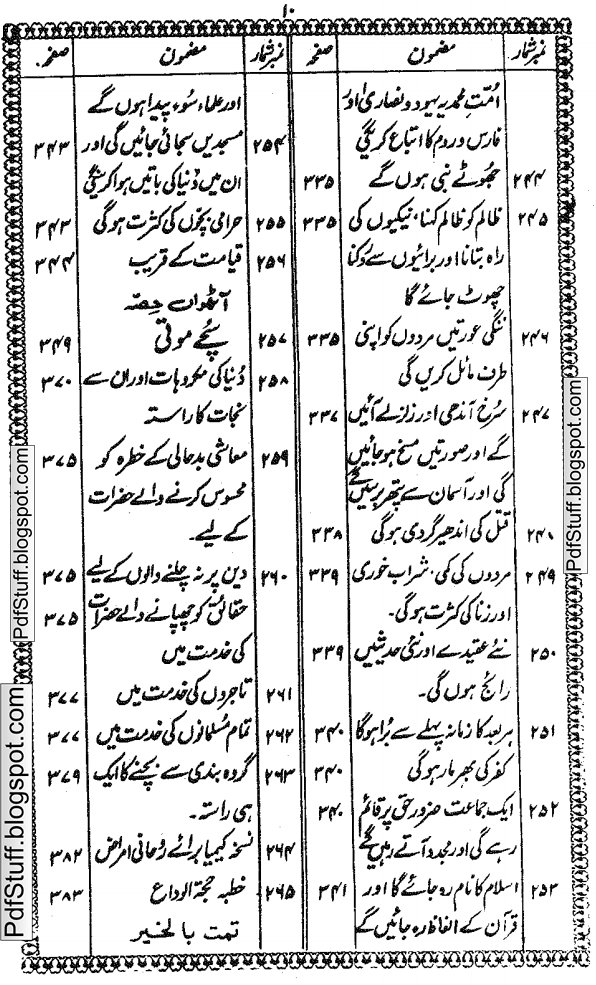 ۱۰
نمبرشمار مضمون صفحہ
اُمّتِ محمدیہ یہود و نصاریٰ اور
فارس و روم کا اتباع کریگی
۲۴۴ جھوٹے نبی ہوں گے ۳۳۵
۲۴۵ ظالم کو ظالم کہنا، نیکیوں کی ۳۳۵
راہ بتانا اور برائیوں سے روکنا
چھوٹ جائے گا
۲۴۶ ننگی عورتیں مردوں کو اپنی ۳۳۵
طرف مائل کریں گی
۲۴۷ سرخ آندھی اور زلزلے آئیں ۳۳۷
گے اور صورتیں مسخ ہو جائیں
گی اور آسمان سے پتھر برسیں گے
۲۴۸ قتل کی اندھیر گردی ہو گی ۳۳۸
۲۴۹ مردوں کی کمی، شراب خوری ۳۳۹
اور زنا کی کثرت ہو گی۔
۲۵۰ نئے عقیدے اور نئی حدیثیں ۳۳۹
رائج ہوں گی۔
۲۵۱ ہر بعد کا زمانہ پہلے سے بُرا ہوگا ۳۴۰
کفر کی بھرمار ہو گی ۳۴۰
۲۵۲ ایک جماعت ضرور حق پر قائم ۳۴۰
رہے گی اور مجدد آتے رہیں گے
۲۵۳ اسلام کا نام رہ جائے گا اور ۳۴۱
قرآن کے الفاظ رہ جائیں گے
نمبرشمار مضمون صفحہ
اور علماء سُوء پیدا ہوں گے
۲۵۴ مسجدیں سجائی جائیں گی اور ۳۴۳
ان میں دُنیا کی باتیں ہوا کریں گی
۲۵۵ حرامی بچّوں کی کثرت ہو گی ۳۴۳
۲۵۶ قیامت کے قریب ۳۴۴
آٹھواں حِصّہ
۲۵۷ سچّے موتی ۳۴۹
۲۵۸ دُنیا کی مکروہات اور ان سے ۳۷۰
نجات کا راستہ
۲۵۹ معاشی بدحالی کے خطرہ کو ۳۷۵
محسوس کرنے والے حضرات
کے لیے۔
۲۶۰ دین پر نہ چلنے والوں کے لیے ۳۷۵
حقائق کو چھپانے والے حضرات ۳۷۵
کی خدمت میں
۲۶۱ تاجروں کی خدمت میں ۳۷۷
۲۶۲ تمام مُسلمانوں کی خدمت میں ۳۷۷
۲۶۳ گروہ بندی سے بچنے کا ایک ۳۷۹
ہی راستہ۔
۲۶۴ نسخہ کیمیا برائے رُوحانی امراض ۳۸۲
۲۶۵ خطبہ حجۃ الوداع ۳۸۳
تمت بالخیر
PdfStuff.blogspot.com
PdfStuff.blogspot.com
PdfStuff.blogspot.com